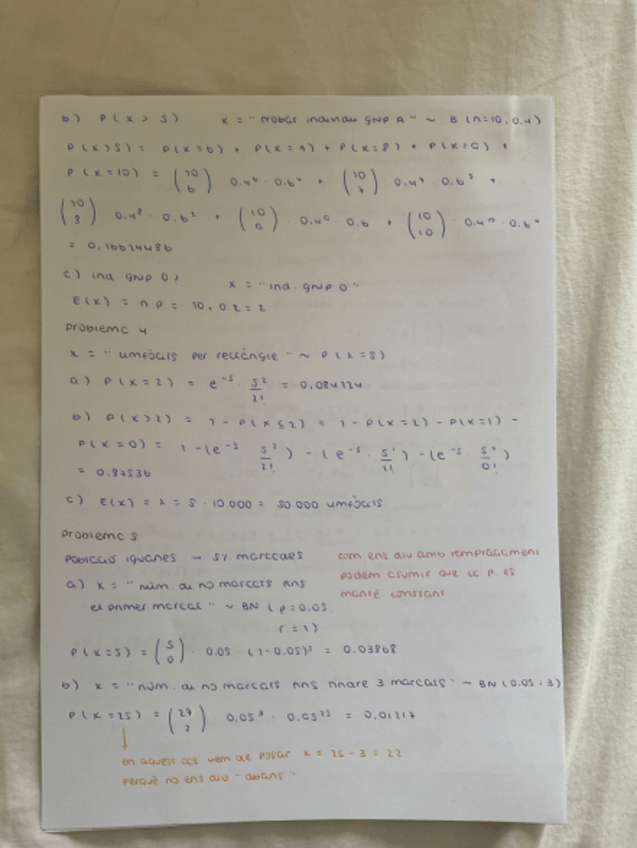 b) P(X > 5) X = "trobar individu grup A" ~ B(n=10, 0.4)
P(X>5) = P(X=6) + P(X=7) + P(X=8) + P(X=9) +
P(X=10) = (10 6) 0.4⁶ · 0.6⁴ + (10 7) 0.4⁷ · 0.6³ +
(10 8) 0.4⁸ · 0.6² + (10 9) · 0.4⁹ · 0.6 + (10 10) · 0.4¹⁰ · 0.6⁰
= 0,16624486
c) ind. grup O: X = "ind. grup O"
E(X) = n p = 10 · 0.2 = 2
Problema 4
X = "umfòcils per rectangle" ~ P(λ=5)
a) P(X=2) = e⁻⁵ · 5²/2! = 0,084224
b) P(X>2) = 1 - P(X≤2) = 1 - P(X=2) - P(X=1) -
P(X=0) = 1 - (e⁻⁵ · 5²/2!) - (e⁻⁵ · 5¹/1!) - (e⁻⁵ · 5⁰/0!)
= 0.87536
c) E(X) = λ = 5 · 10.000 = 50.000 umfòcils
Problema 5
Població iguanes → 5% marcades
com ens diu amb remplaçament
podem asumir que la p. es
manté constant
a) X = "núm. de no marcats fins
el primer marcat" ~ BN (p=0.05,
r=1)
P(X=5) = (5 0) · 0.05 · (1-0.05)⁵ = 0.03868
b) X = "núm. de no marcats fins trobar 3 marcats" ~ BN (0.05, 3)
P(X=25) = (27 2) 0.05³ · 0.95²⁵ = 0.01217
en aquest cas hem de posar X = 25 - 3 = 22
perquè no ens diu "abans"